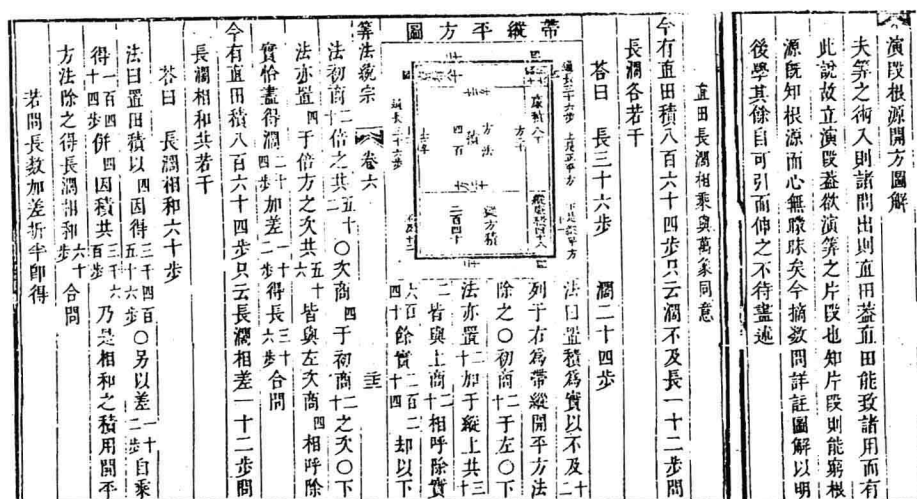 演段根源開方圖解
夫筭之術入則諸問出則直田蓋直田能致諸用而有
此說故立演段蓋欲演筭之片段也知片段則能窮根
源既知根源而心無朦昧矣今摘数問詳註圖解以明
後學其餘自可引而伸之不待盡述
直田長濶相乘與萬象同意
今有直田積八百六十四步只云濶不及長一十二步問
長濶各若干
荅曰 長三十六步 濶二十四步
帶縱平方圖
方法
積
四百
從方積
二百四十
法曰置積為實以不及十二
列于右為帶縱開平方法
除之〇初商二十于左〇下
法亦置二十加于縱上共三十
二皆與上商二十相呼除實
六百四十餘實二百二十四却以下
法初商二十倍之共五十二〇次商四于初商二十之次〇下
法亦置四于倍方之次共五十六皆與左次商四相呼除
實恰盡得濶二十四步加差一十二步得長三十六步合問
筭法統宗 卷六
今有直田積八百六十四步只云長濶相差一十二步問
長濶相和共若干
荅曰 長濶相和六十步
法曰置田積以四因得三千四百五十六步〇另以差一十二步自乘
得一百四十四步併四因積共三千六百步乃是相和之積用開平
方法除之得長濶相和六十步合問
若問長数加差折半卽得